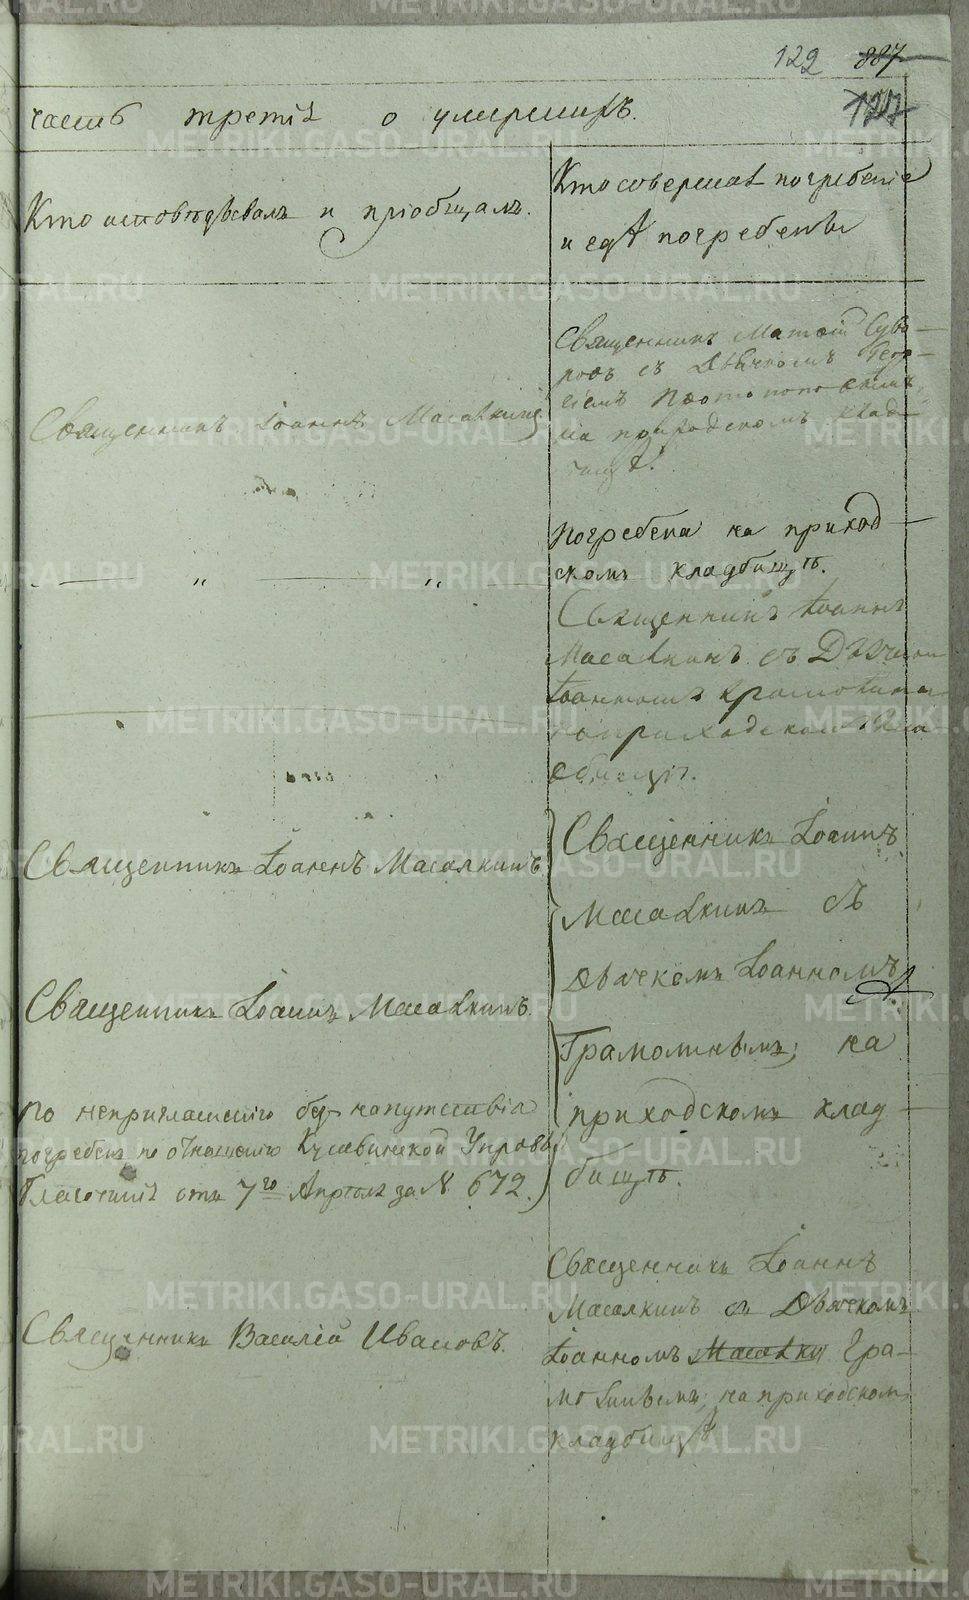 122 887
127
часть третія о умершихъ.
Кто исповѣдывалъ и пріобщалъ.
Кто совершалъ погребеніе
и гдѣ погребены
Священникъ Матѳій Суво-
ровъ съ Дьячкомъ Геор-
гіемъ
на приходскомъ клад-
бищѣ.
Священникъ Іоаннъ Масалкинъ
Погребена на приход-
скомъ кладбищѣ.
„ „
Священникъ Іоаннъ
Масалкинъ съ Дьячкомъ
Іоанномъ Грамолинымъ
на приходскомъ кла
дбищѣ.
Священникъ Іоаннъ Масалкинъ
Священникъ Іоаннъ
Масалкинъ съ
Дьячкомъ Іоанномъ
Грамолинымъ; на
приходскомъ клад-
бищѣ.
Священникъ Іоаннъ Масалкинъ.
По неприглашенію безъ напутствія
погребенъ по отношенію Кушвинской Управы
Благочинія отъ 7го Апрѣля за № 672.
Священникъ Василій Ивановъ.
Священникъ Іоаннъ
Масалкинъ съ Дьячкомъ
Іоанномъ Масалки Гра-
молинымъ; на приходскомъ
кладбищѣ
METRIKI.GASO-URAL.RU